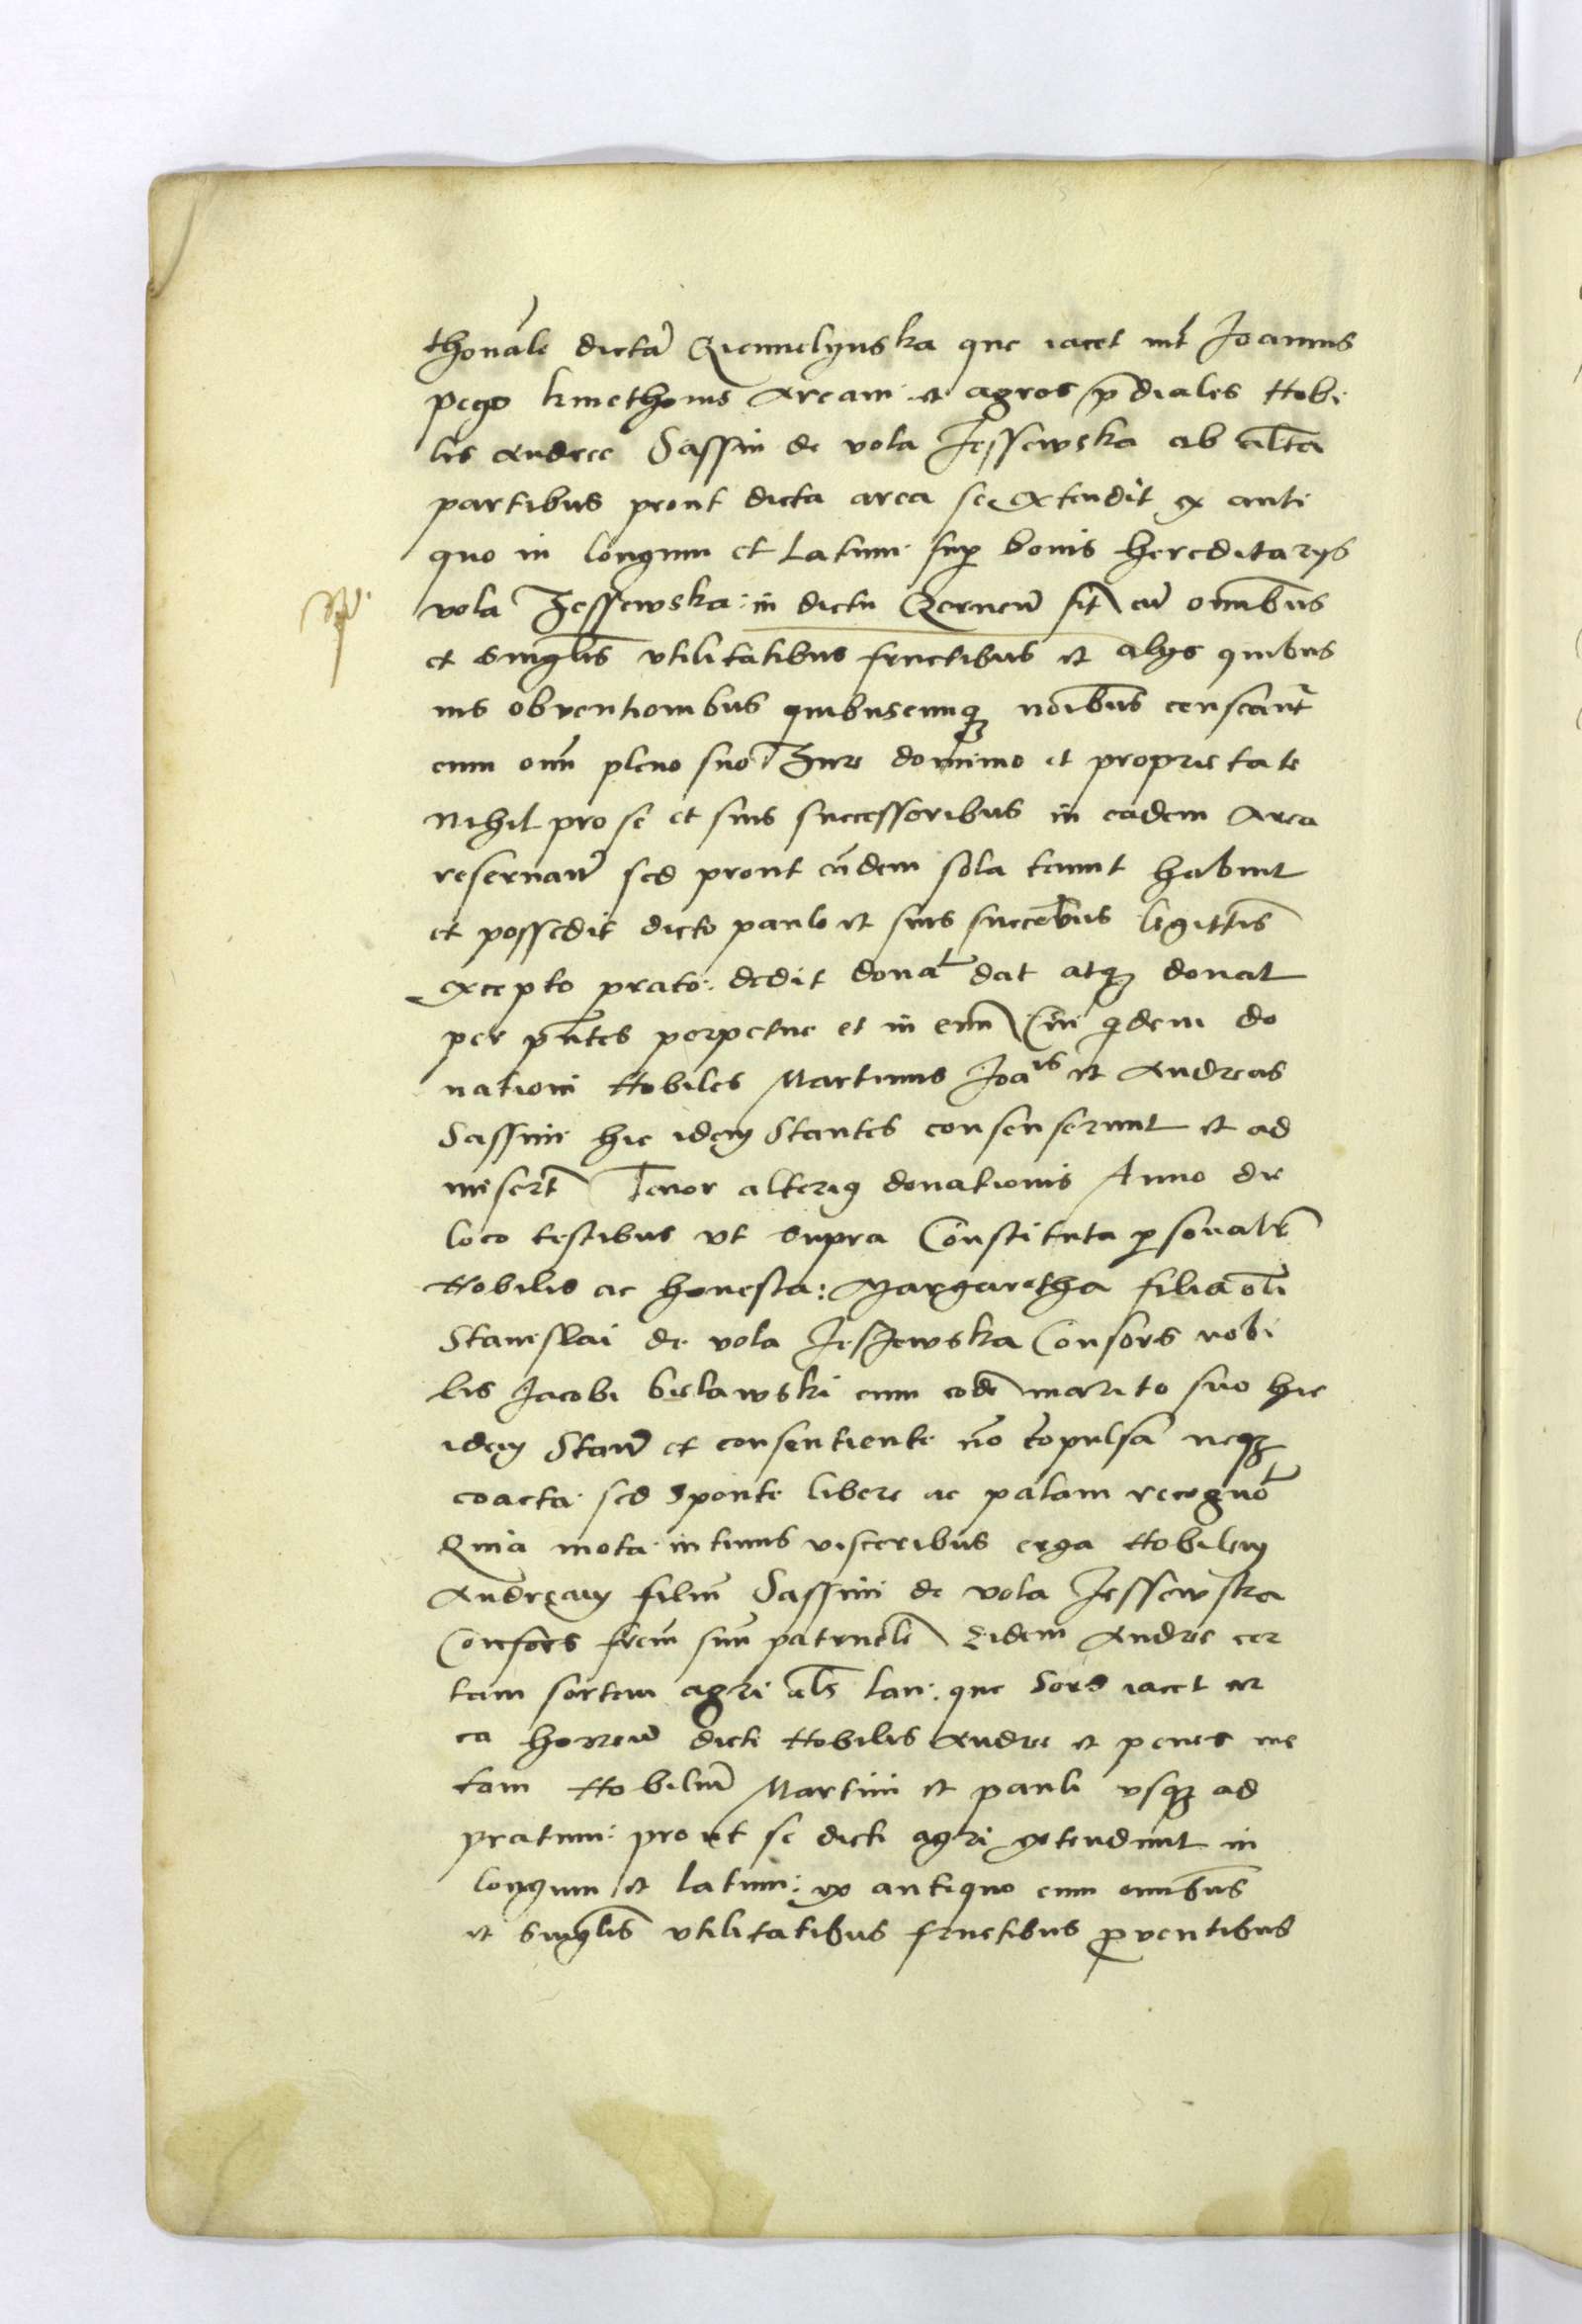 thonale dicta Qiemelynska que iacet int Joannis
pego kmethonis Aream et agros pdiales Nobi
lis Andree Sassin de vola Jessewska ab altra
partibus prout dicta area se extendit ex anti
quo in longum et Latum sup bonis hereditarys
vola Jessewska: in dictu sit cu omnibus
et singlis vtilitatibus fructibus et alys quibus
uis obventionibus quibuscunq noibus censeant
cum omi pleno suo Jure dominio et proprietate
Nihil pro se et suis successoribus in eadem Area
reseruan sed prout eadem sola tenuit habuit
et possedit dicto paulo et suis succebus legittis
excepto prato: dedit donat dat atq donat
per pntes perpetue et in eum Cui qdem do
nationi Nobiles Martinus Joais et Andreas
Sassini hic idem Stantes consenserunt et ad
misert Tenor alterius donationis Anno die
loco testibus vt supra Constituta psonalr
Nobilis ac honesta: Margaretha filia oli
Stanislai de vola Jessewska Consors nobi
lis Jacobi bielawski cum eode marito suo hic
idem Stan et consentiente no copulsa neq
coacta sed sponte libere ac palam recogno
Quia mota intimis visceribus erga Nobilem
Andream filiu Sassini de vola Jessewska
Consors frem suu patruele Eidem Andree cer
tam sortem agri als lan: que sors iacet cir
ca horreu dicti Nobilis Andree et penes me
tam Nobiliu Martini et pauli vsq ad
pratum: prout se dicti agri extendunt in
longum et latum: ex antiquo cum omnibus
et singlis vtilitatibus fructibus puentibus